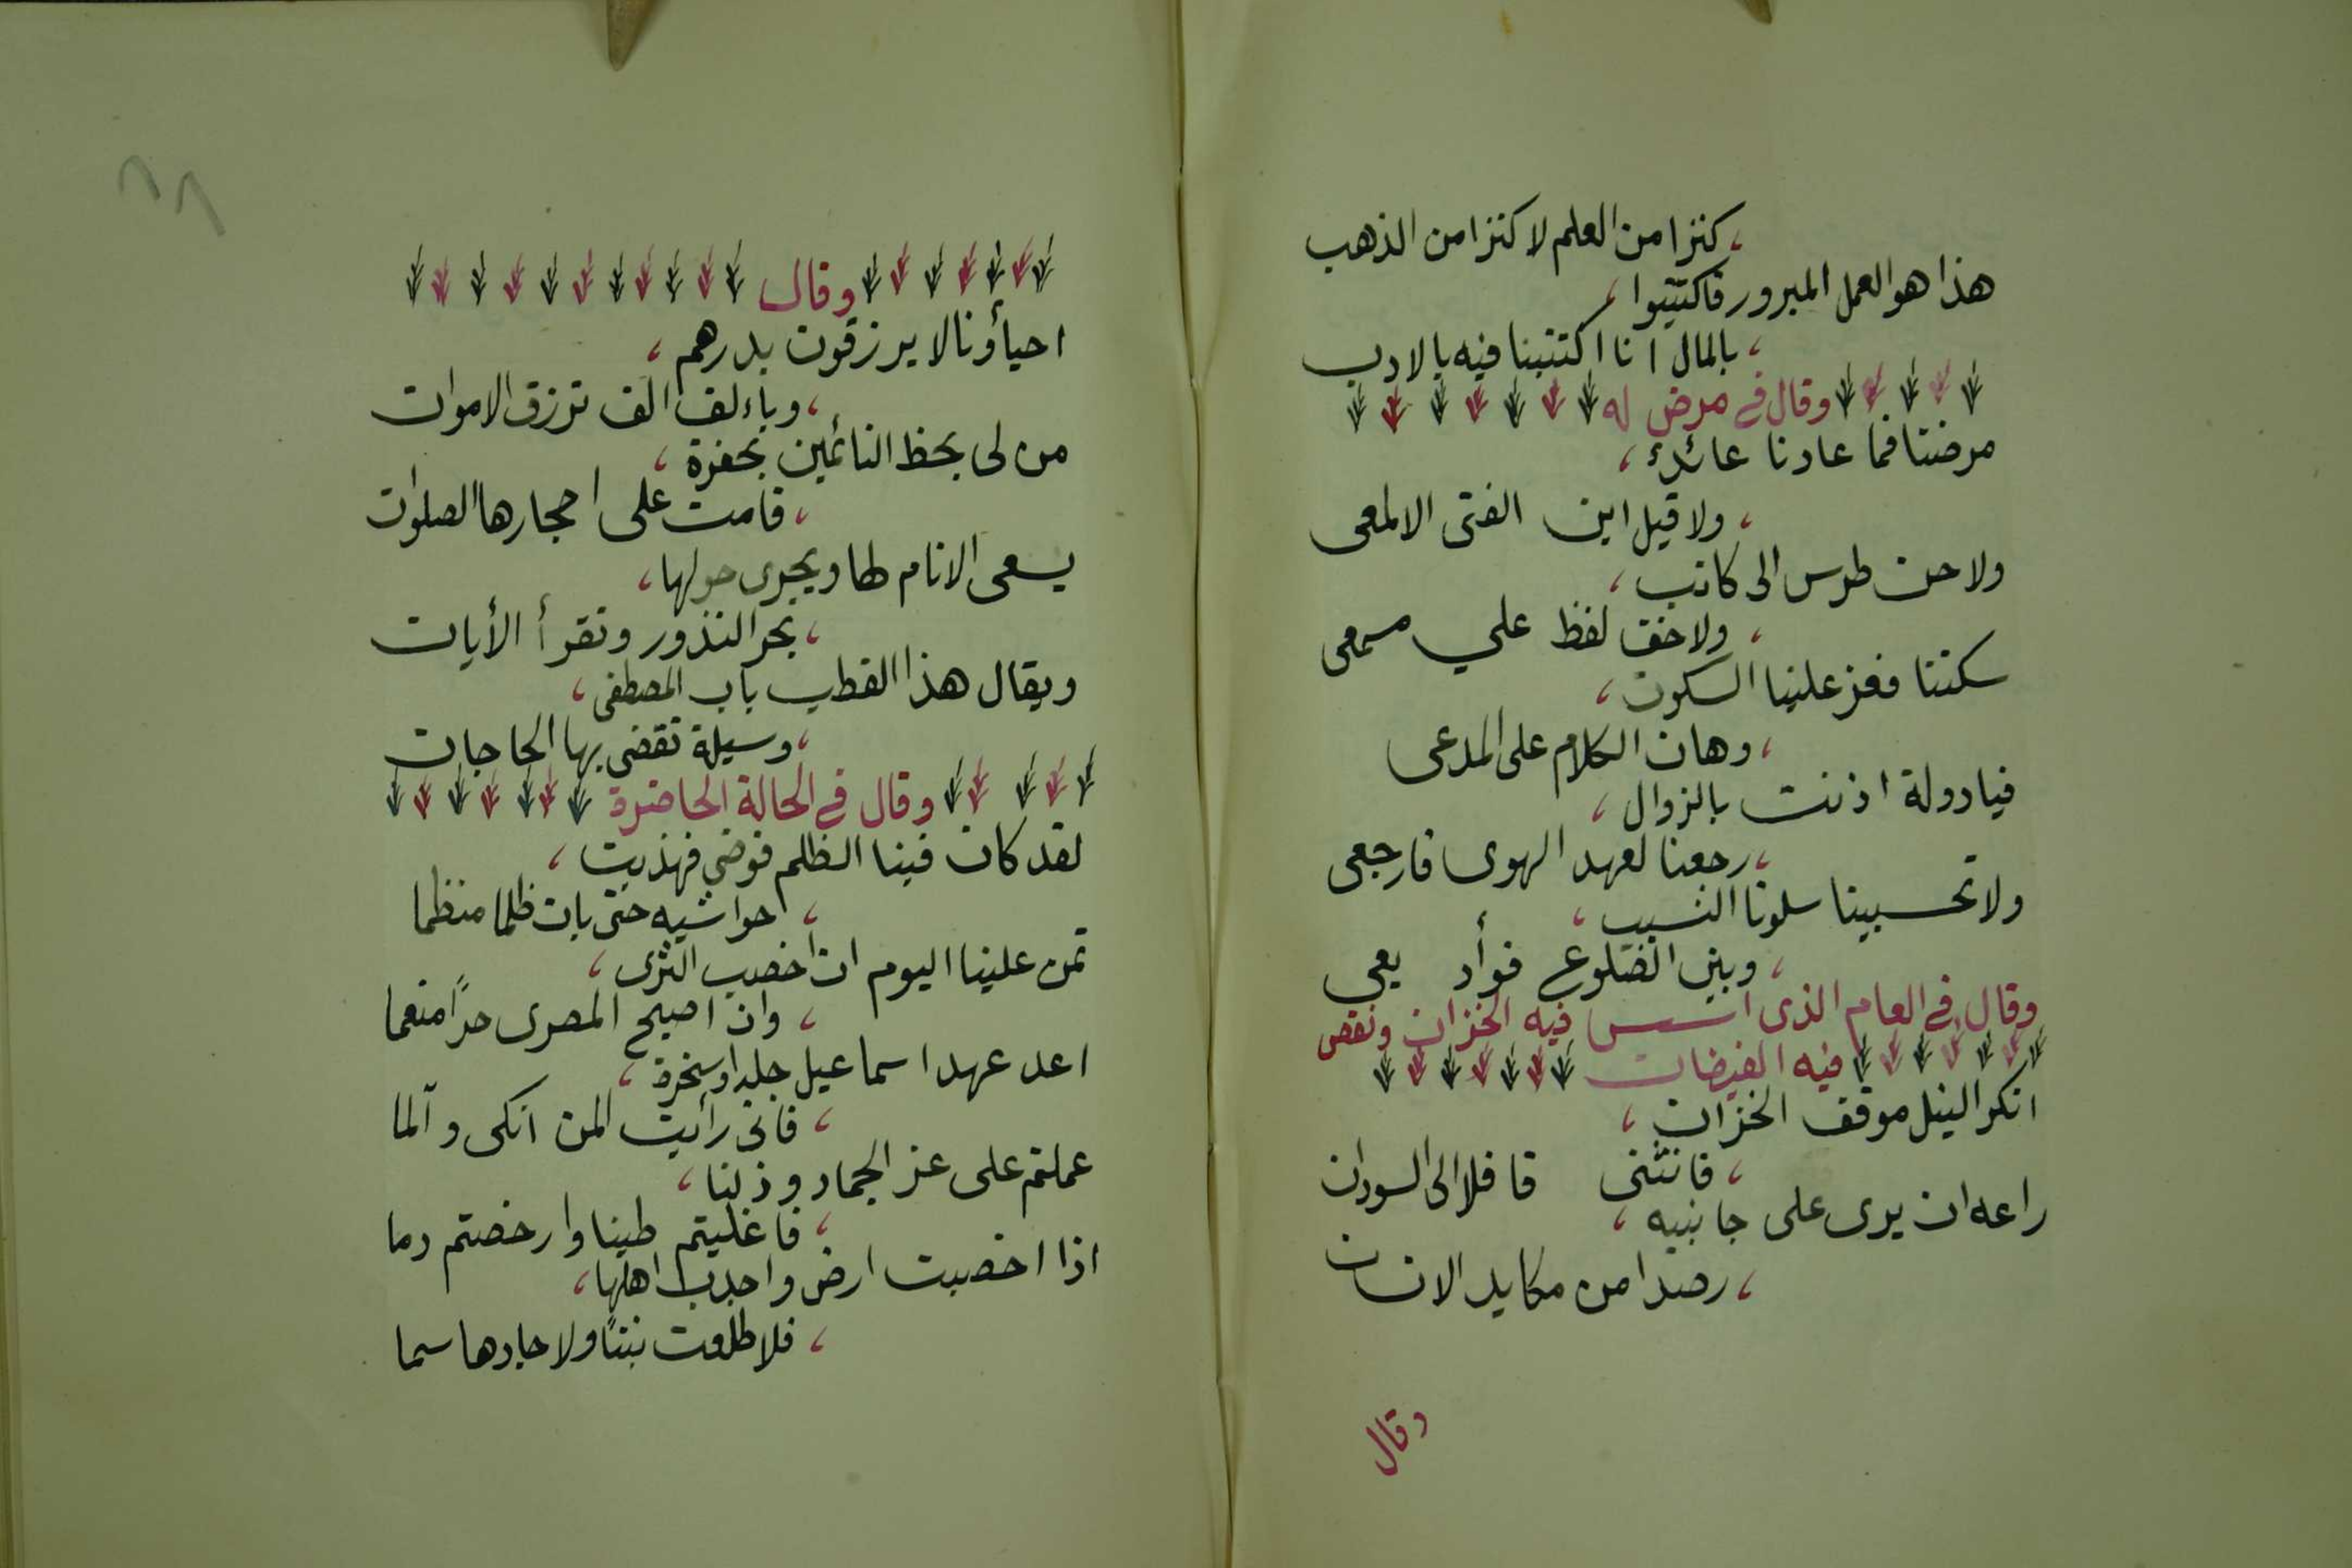 كنزا من العلم لا كنزا من الذهب
هذا هو العمل المبرور فاكتتبوا
بالمال انا اكتتبنا فيه بالادب
وقال في مرض له
مرضنا فما عادنا عائد
ولا قيل اين الفتى الالمعى
ولا حن طرس الى كاتب
ولا خف لفظ على مسمعى
سكتنا فعز علينا السكوت
وهان الكلام على المدعى
فيادولة اذنت بالزوال
رجعنا لعهد الهوى فارجعى
ولا تحسبينا سلونا النسيب
وبين الضلوع فوأد يعي
وقال في العام الذى اسس فيه الخزان ونقص
فيه الفيضان
انكر النيل موقف الخزان
فانثنى قافلا الى السودان
راعه ان يرى على جانبيه
رصدا من مكايد الانسان
وقال
وقال
احياؤنا لا يرزقون بدرهم
وباءلف الف ترزق الاموات
من لى بحظ النائمين بحفرة
قامت على احجارها الصلوات
يسعى الانام لها ويجرى حولها
بحر النذور وتقرأ الأيات
ويقال هذا القطب باب المصطفى
وسيلة تقضى بها الحاجات
وقال في الحالة الحاضرة
لقد كان فينا الظلم فوضى فهذبت
حواشيه حتى بات ظلما منظما
تمن علينا اليوم ان اخصب الثرى
وان اصبح المصرى حرًا منعما
اعد عهد اسماعيل جلدا وسخرة
فانى رأيت المن انكى وآلما
عملتم على عز الجماد وذلنا
فاغليتم طينا وارخصتم دما
اذا اخصبت ارض واجدب اهلها
فلا طلعت نبتًا ولا جادها سما